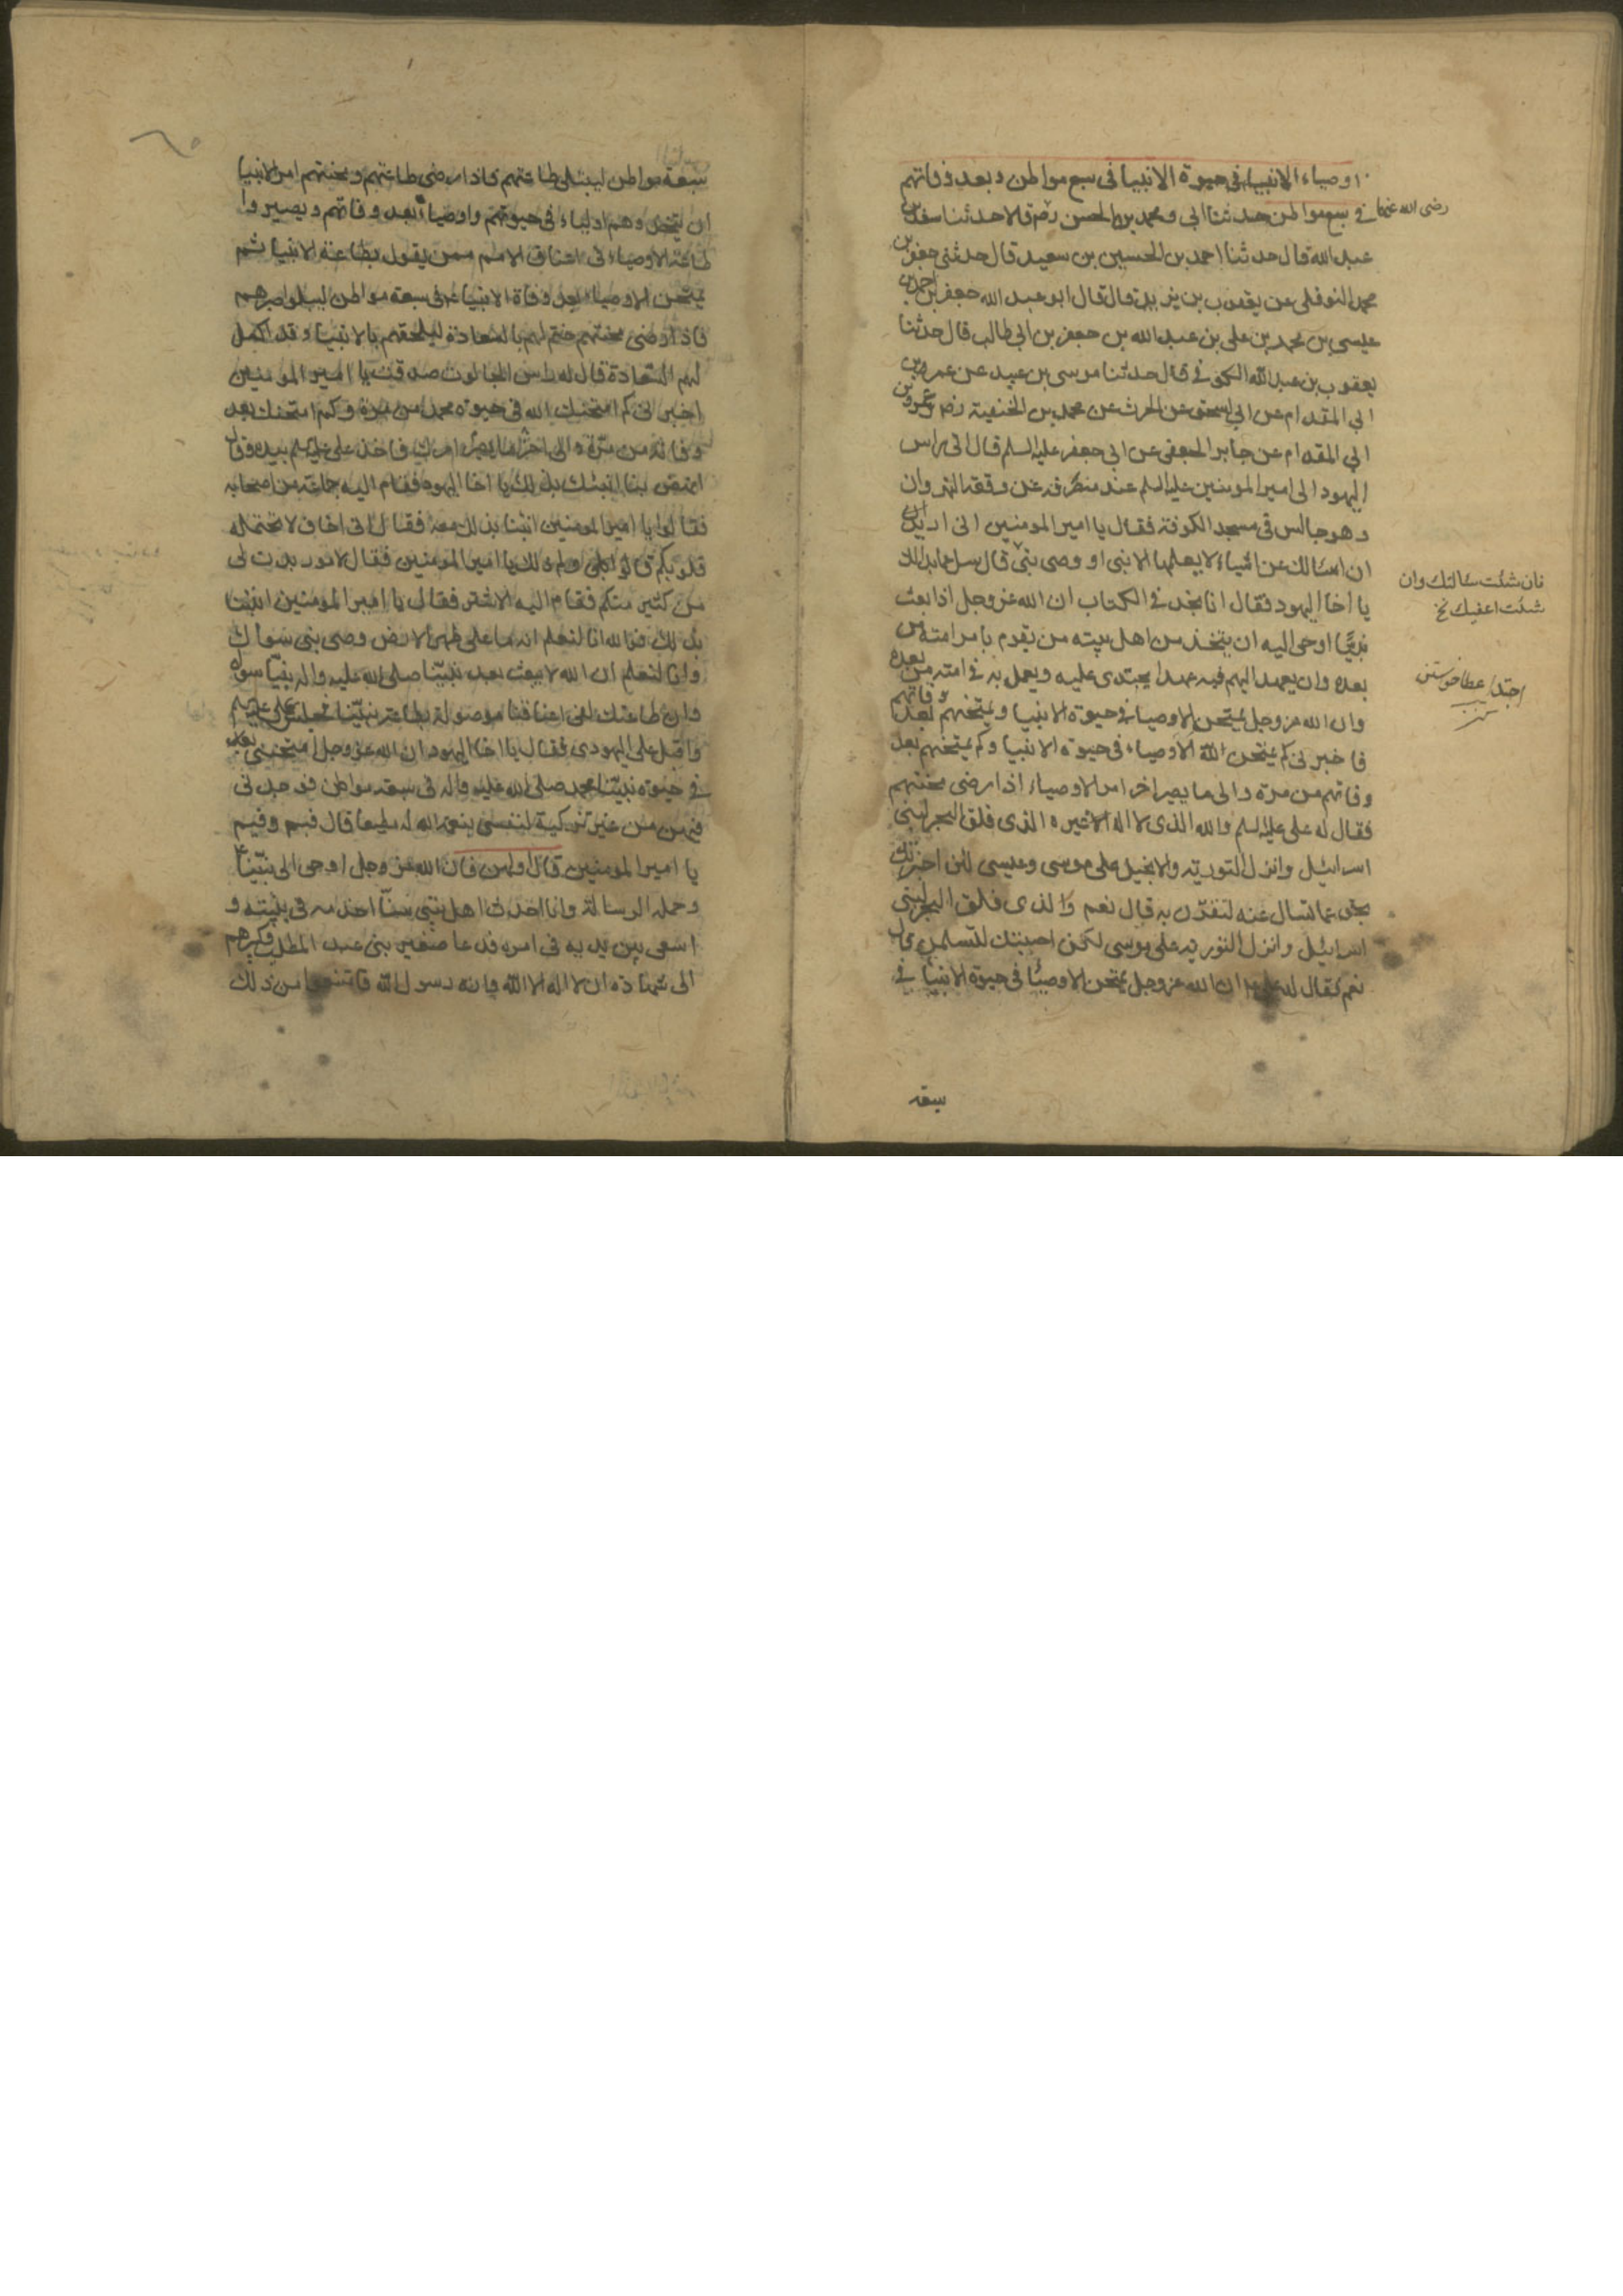 اوصياء الانبيا في حيوة الانبيا في سبع مواطن و بعد وفاتهم
في سبع مواطن حدثنا ابي و محمد بن الحسن رضم قالا حدثنا سعد بن
رضى الله عنهما
عبد الله قال حدثنا احمد بن الحسين بن سعيد قال حدثني جعفر بن
محمد النوفلي عن يعقوب بن يزيد قال قال ابو عبد الله جعفر بن احمد بن
عيسى بن محمد بن على بن عبد الله بن جعفر بن ابي طالب قال حدثنا
يعقوب بن عبد الله الكوفي قال حدثنا موسى بن عبيد عن عمرو بن
ابي المقدام عن ابي اسحق عن الحرث عن محمد بن الحنفية رضم و عمرو بن
ابي المقدام عن جابر الجعفى عن ابي جعفر عليه السلم قال اتى راس
اليهود الى امير المومنين عليه السلم عند منصرفه عن وقعة النهروان
و هو جالس في مسجد الكوفة فقال يا امير المومنين انى اريد
ان اسالك عن اشياء لا يعلمها الا نبى او وصى نبى قال سل عما بدا لك
فان شئت سالتك وان
شئت اعفيك نخ
يا اخا اليهود فقال انا نجد في الكتاب ان الله عز وجل اذا بعث
نبيا اوحى اليه ان يتخذ من اهل بيته من يقوم بامر امته من
بعده وان يعهد اليهم فيه عهدا يحتذى عليه و يعمل به في امته من بعده
وان الله عز وجل يمتحن الاوصياء في حيوة الانبيا و يمتحنهم بعد وفاتهم
فاخبرنى كم يمتحن الله الاوصياء في حيوة الانبيا و كم يمتحنهم بعد
وفاتهم من مرة و الى ما يصير اخر امر الاوصياء اذا رضى محنتهم
فقال له على عليه السلم والله الذى لا اله غيره الذى فلق البحر لبنى
اسرائيل و انزل التورية و الانجيل على موسى و عيسى لئن اخبرتك
بحق عما تسال عنه لتقرن به قال نعم و الذى فلق البحر لبنى
اسرائيل و انزل التورية على موسى لئن اجبتك لتسلمن قال
نعم فقال له على ان الله عز وجل يمتحن الاوصيا في حيوة الانبيا في
سبعة
سبعة مواطن ليبتلى طاعتهم فاذا رضى طاعتهم و محنتهم امر الانبيا
ان يتخذوهم اولياء في حيوتهم و اوصياء بعد وفاتهم و يصير وا
طاعة الاوصياء في اعناق الامم ممن يقول بطاعة الانبيا ثم
يمتحن الاوصياء بعد وفاة الانبياء في سبعة مواطن ليبلو صبرهم
فاذا رضى محنتهم ختم لهم بالسعادة ليلحقهم بالانبيا و قد اكمل
لهم السعادة قال له راس الجالوت صدقت يا امير المومنين
اخبرنى كم امتحنك الله في حيوة محمد من مرة و كم امتحنك بعد
وفاته من مرة و الى ما يصير اخر امرك فاخذ على عليه السلم بيده و قال
انهض بنا انبئك بذلك يا اخا اليهود فقام اليه جماعة من اصحابه
فقالوا يا امير المومنين انبئنا بذلك معه فقال انى اخاف لا تحتمله
قلوبكم قالوا و لم ذلك يا امير المومنين فقال لامور بدت لى
من كثير منكم فقام اليه الاشتر فقال يا امير المومنين انبئنا
بذلك فوالله انا لنعلم انه ما على ظهر الارض وصى نبى سواك
و انا لنعلم ان الله لا يبعث بعد نبينا صلى الله عليه و اله نبيا سواه
و ان طاعتك لفى اعناقنا موصولة بطاعة نبينا فجلس على عليه السلم
و اقبل على اليهودى فقال يا اخا اليهود ان الله عز وجل امتحننى
في حيوة نبينا محمد صلى الله عليه و اله فى سبعة مواطن فوجدنى
فيهن من غير تزكية لنفسى بنعمة الله له مطيعا قال فيم و فيم
يا امير المومنين قال اولهن فان الله عز وجل اوحى الى نبينا
و حمله الرسالة و انا احدث اهل بيتى سنا اخدمه في بيته و
اسعى بين يديه فى امره فدعا صغير بنى عبد المطلب و كبيرهم
الى شهادة ان لا اله الا الله و انه رسول الله فامتنعوا من ذلك